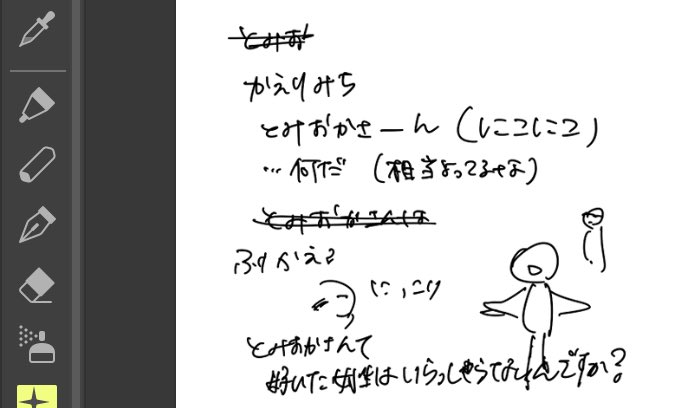 とみお
かえりみち
とみおかさーん（にこにこ）
…何だ（相当よってるなな）
とみおかさんは
ふりかえる
にっこり
とみおかさんて
好いた女性はいらっしゃらないんですか？